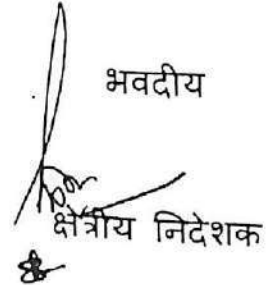 भवदीय
क्षेत्रीय निदेशक